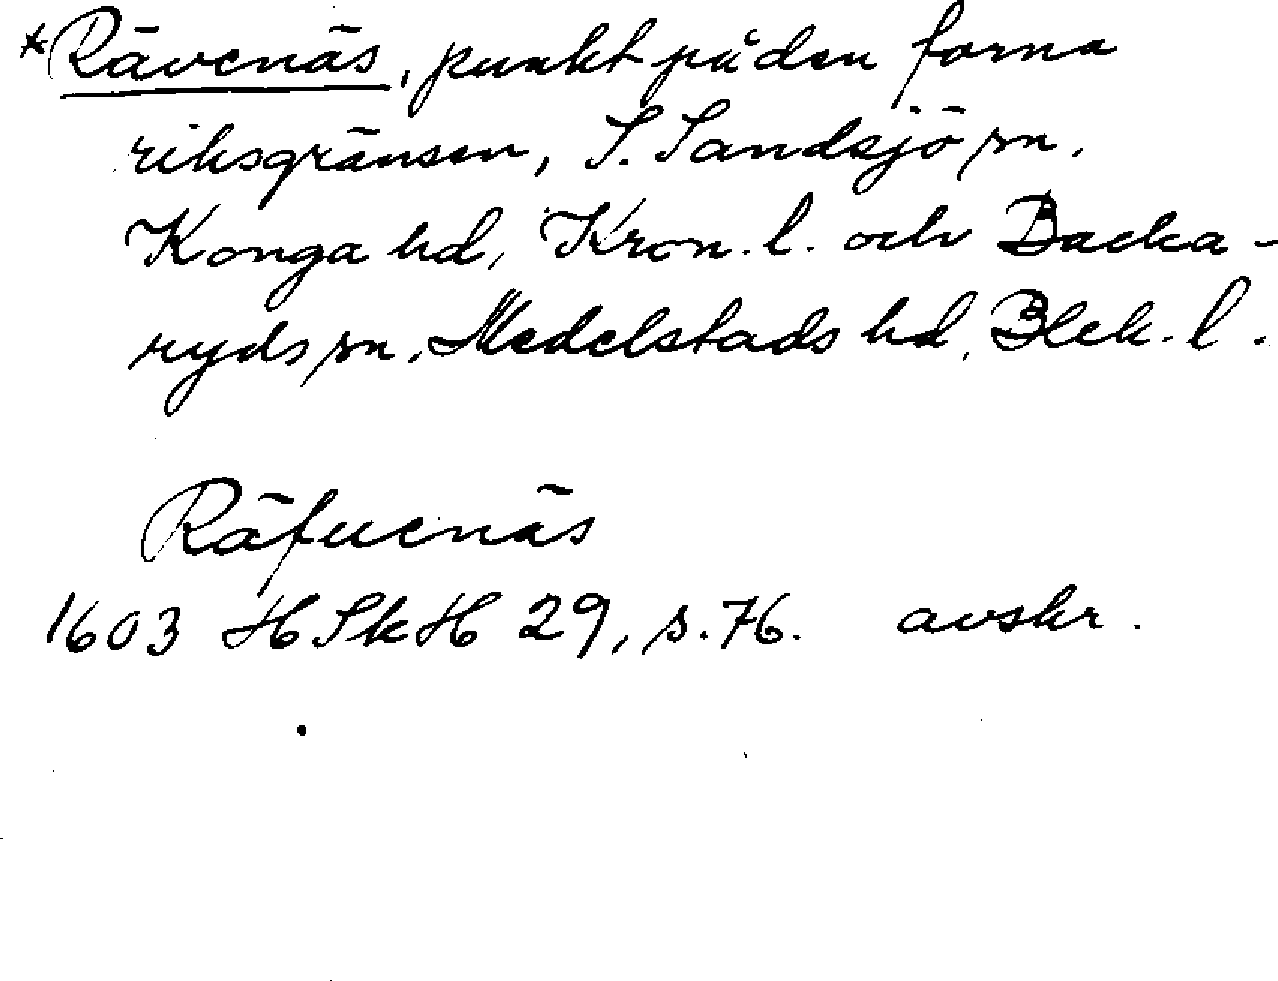 *Rävenäs, punkt på den forna
riksgränsen, S. Sandsjö sn.
Konga hd, Kron. l. och Backa-
ryds sn. Medelstads hd, Blek. l.
Räfuenäs
1603 HSkH 29, s. 76. avskr.